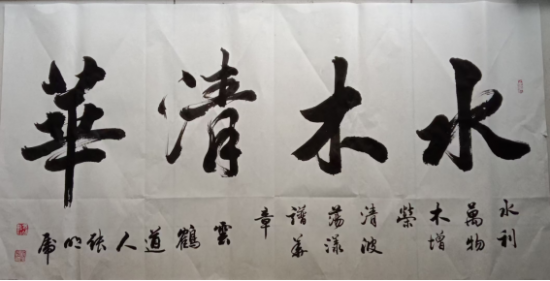 水木清華
水利
萬物
木增
榮
清波
蕩漾
譜華
章
雲鶴道人張明